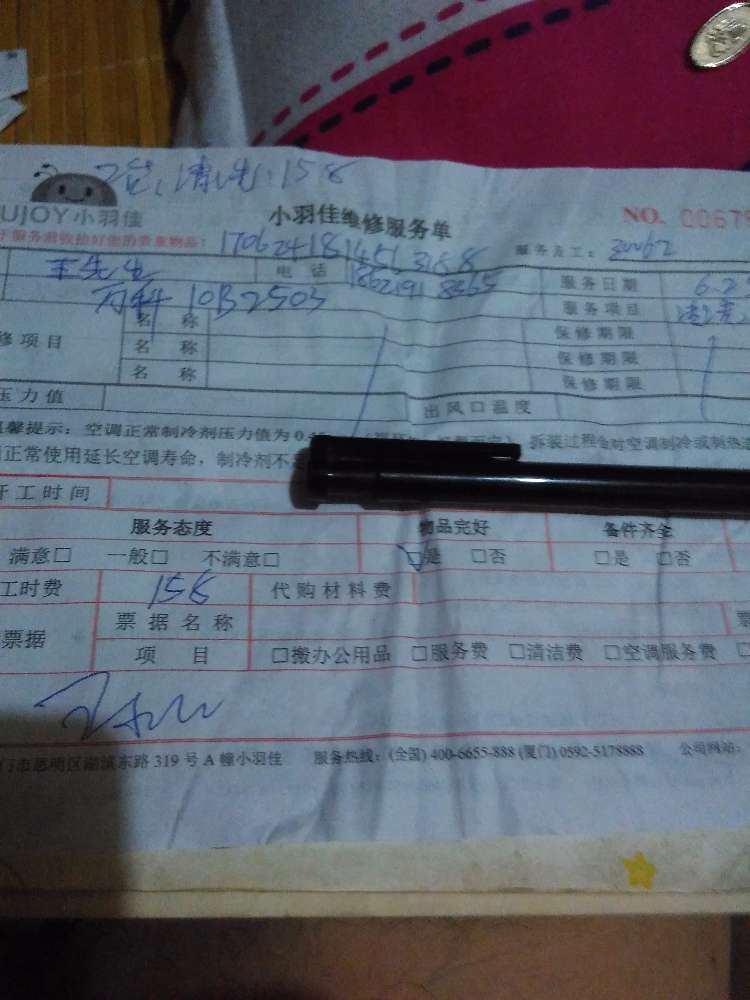 清洗:158
UJOY小羽佳
小羽佳维修服务单
NO. 0067
服务前收拾好您的贵重物品: 17062418145631588
服务员工: 30062
王先生 电话 服务日期 6.2
万科 10B2503 服务项目
名称 保修期限
修项目 名称 保修期限
名称 保修期限
压力值 出风口温度
馨提示:空调正常制冷剂压力值为0. 拆装过程会对空调制冷或制热
正常使用延长空调寿命,制冷剂不
开工时间
服务态度 物品完好 备件齐全
满意□ 一般□ 不满意□ □是 □否 □是 □否
工时费 158 代购材料费
票据 票据名称 票
项目 □搬办公用品 □服务费 □清洁费 □空调服务费
门市思明区湖滨东路 319 号 A 幢小羽佳 服务热线:(全国) 400-6655-888 (厦门) 0592-5178888 公司网站: